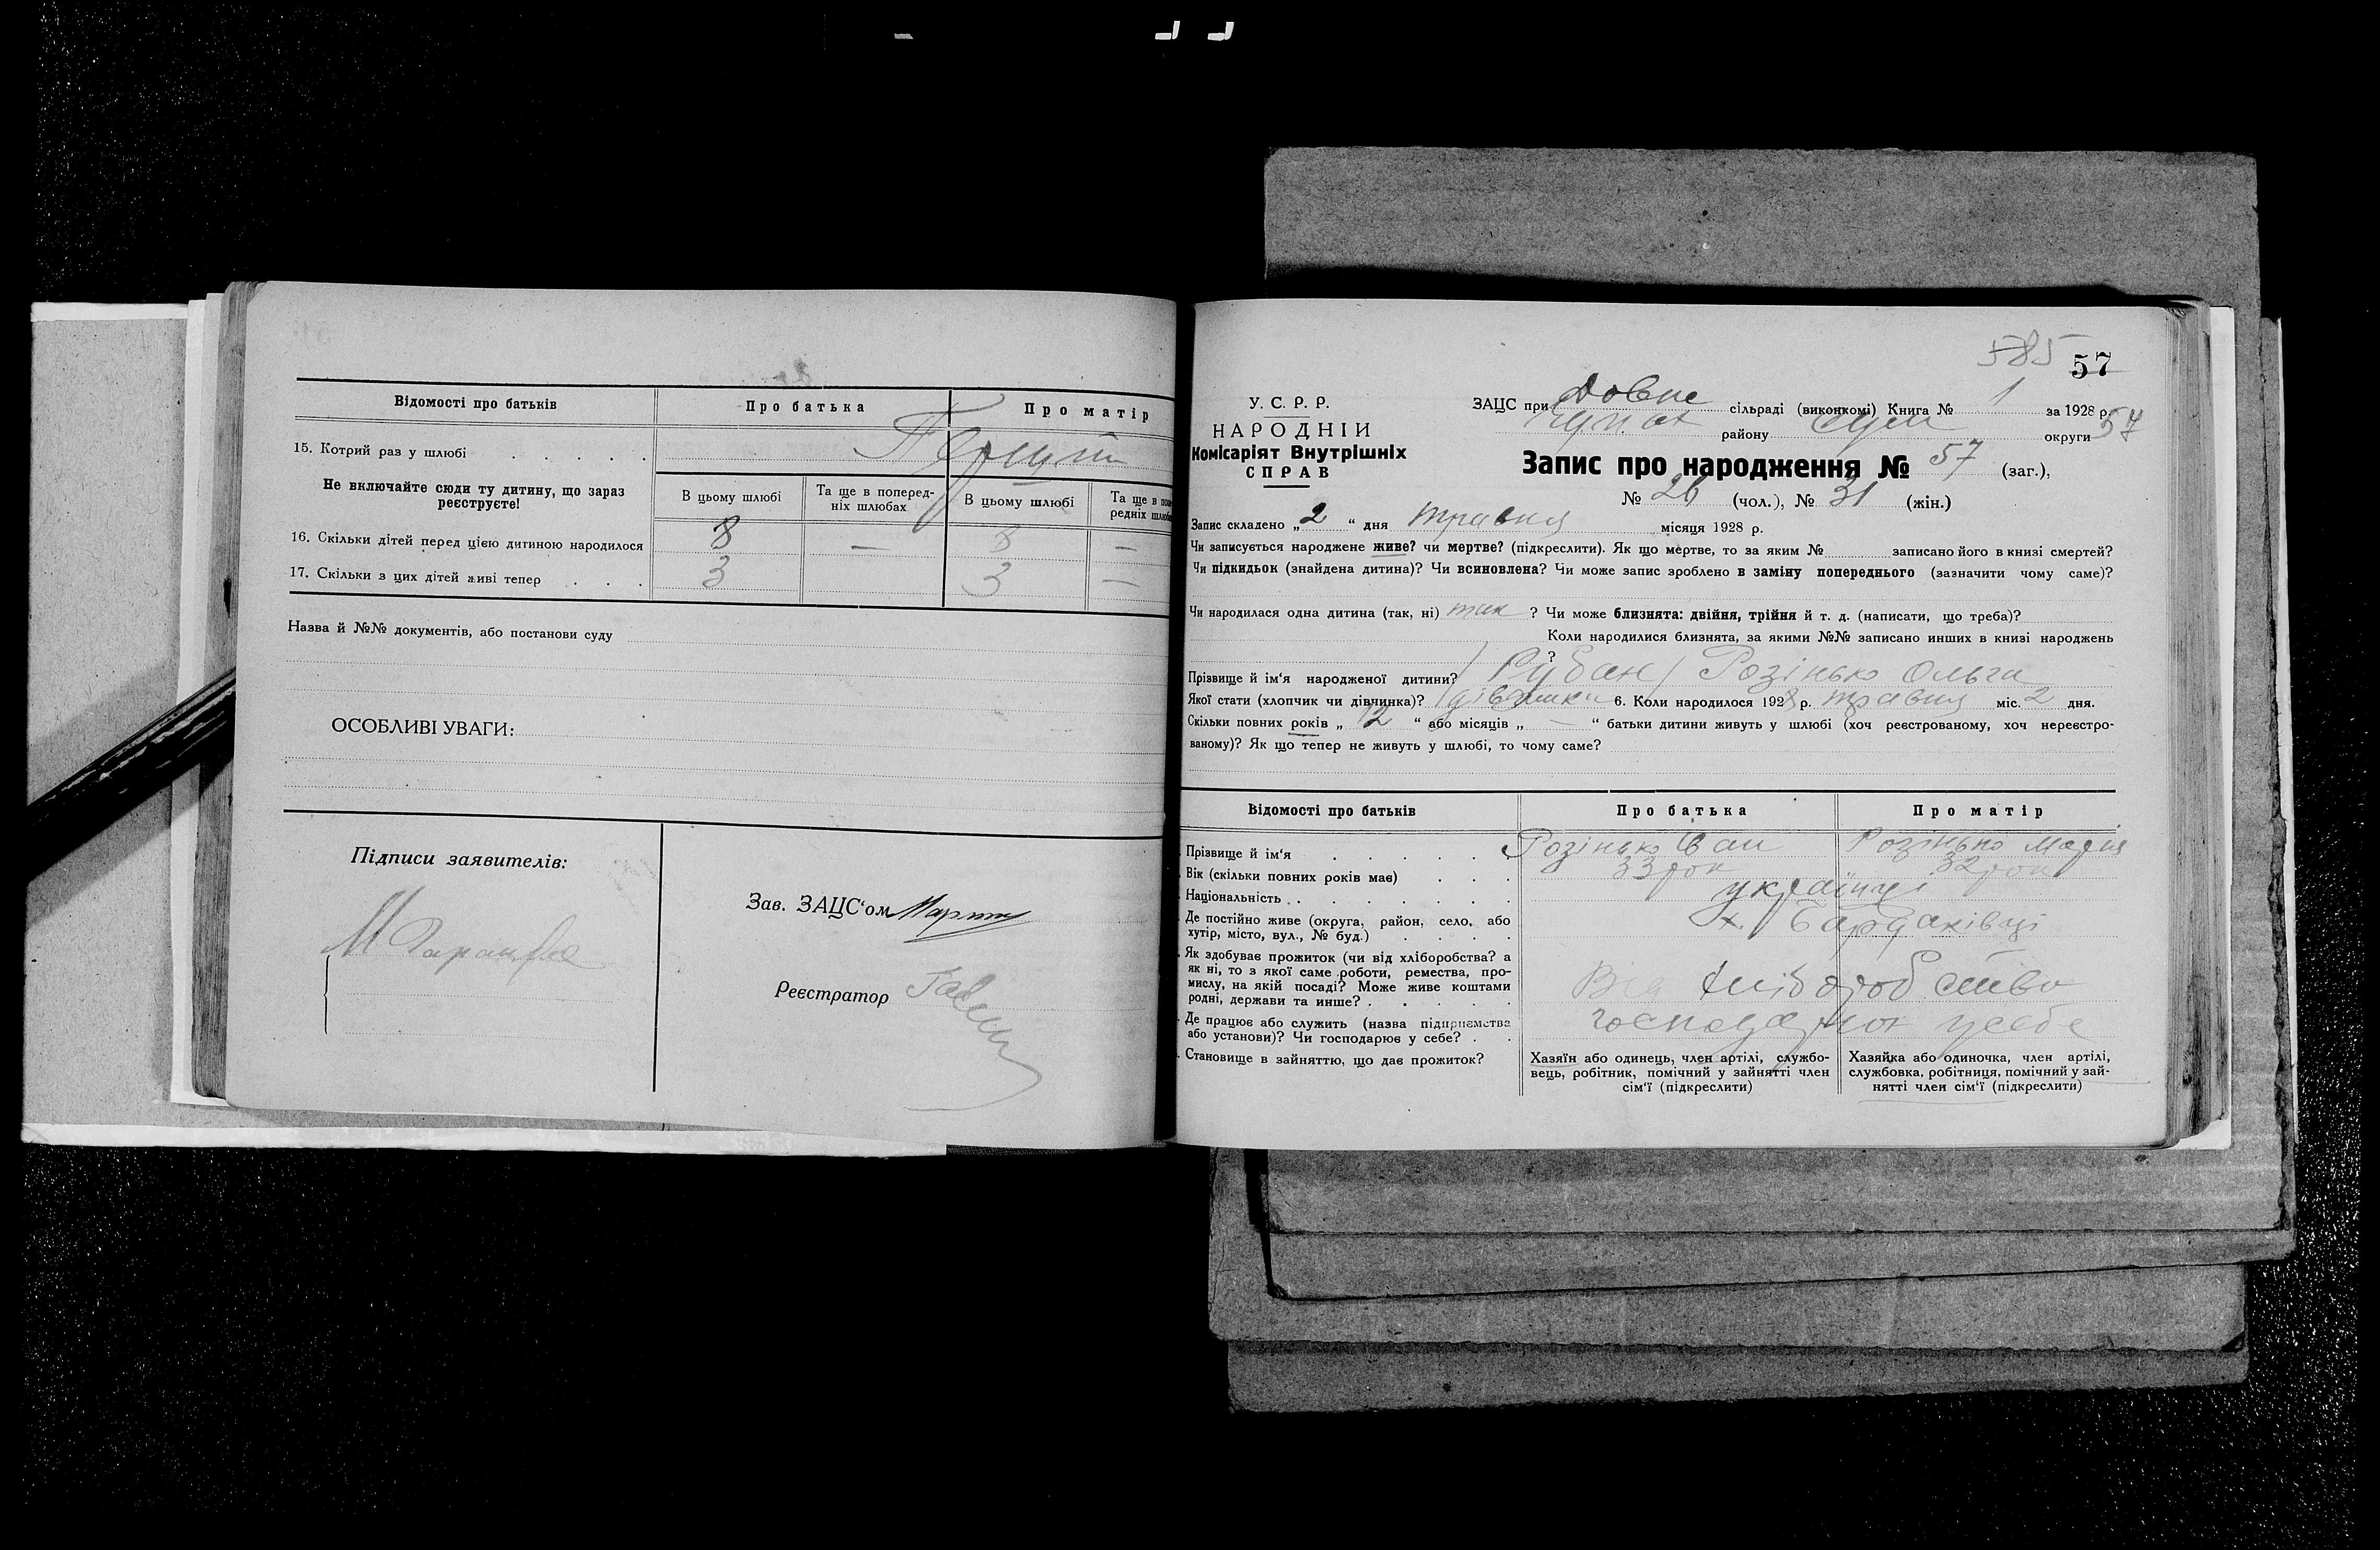 Відомості про батьків
Про батька
Про матір
15. Котрий раз у шлюбі
Не включайте сюди ту дитину, що зараз
реєструєте!
В цьому шлюбі
Та ще в поперед-
ніх шлюбах
В цьому шлюбі
Та ще в попе-
редніх шлюбах
16. Скільки дітей перед цією дитиною народилося 8 — 8 —
17. Скільки з цих дітей живі тепер 3 3 —
Назва й №№ документів, або постанови суду
ОСОБЛИВІ УВАГИ:
Підписи заявителів:
Зав. ЗАЦС'ом
Реєстратор
585 57
У. С. Р. Р.
НАРОДНІЙ
Комісаріят Внутрішніх
СПРАВ
ЗАЦС при сільраді (виконкомі) Книга № 1 за 1928 р.
району Сум округи 57
Запис про народження № 57 (заг.),
№ 26 (чол.), № 31 (жін.)
Запис складено „2“ дня травня місяця 1928 р.
Чи записується народжене живе? чи мертве? (підкреслити). Як що мертве, то за яким № записано його в книзі смертей?
Чи підкидьок (знайдена дитина)? Чи всиновлена? Чи може запис зроблено в заміну попереднього (зазначити чому саме)?
Чи народилася одна дитина (так, ні) так ? Чи може близнята: двійня, трійня й т. д. (написати, що треба)?
Коли народилися близнята, за якими №№ записано инших в книзі народжень
?
Прізвище й ім'я народженої дитини? /Рубан/ Розінько Ольга
Якої стати (хлопчик чи дівчинка)? 6. Коли народилося 1928 р. травня міс. 2 дня.
Скільки повних років „12“ або місяців „—“ батьки дитини живуть у шлюбі (хоч реєстрованому, хоч нереєстро-
ваному)? Як що тепер не живуть у шлюбі, то чому саме?
Відомості про батьків
Про батька
Про матір
Прізвище й ім'я Розінько Іван Розінько Мария
Вік (скільки повних років має) 33 рок 32 рок
Національність українці
Де постійно живе (округа, район, село, або
хутір, місто, вул., № буд.) х. Бардаківці
Як здобуває прожиток (чи від хліборобства? а
як ні, то з якої саме роботи, ремества, про-
мислу, на якій посаді? Може живе коштами
родні, держави та инше?
Від хліборобства
Де працює або служить (назва підприємства
або установи)? Чи господарює у себе?
Становище в зайняттю, що дає прожиток?
Хазяїн або одинець, член артілі, службо-
вець, робітник, помічний у зайнятті член
сім'ї (підкреслити)
Хазяйка або одиночка, член артілі,
службовка, робітниця, помічний у зай-
нятті член сім'ї (підкреслити)